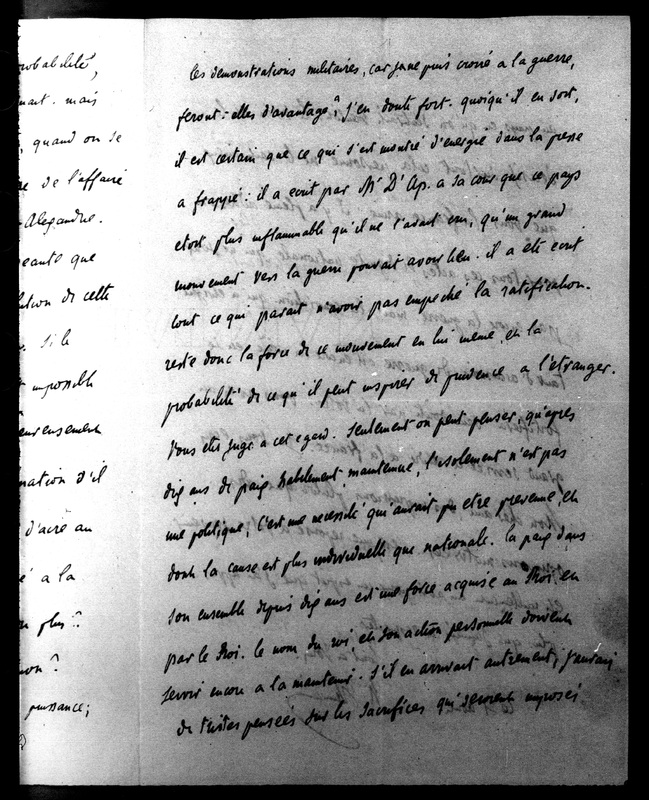 robabilité,
nait. mais
, quand on se
re de l'affaire
Alexandre.
eante que
ution de cette
. si le
impossible
eureusement
nation d'il
d'acre au
é a la
plus ?
non ?
puissance ;
les demonstrations militaires, car je ne puis croire a la guerre,
feront-elles d'avantage ? j'en doute fort. quoiqu'il en soit,
il est certain que ce qui s'est montré d'energie dans la presse
a frappé : il a ecrit par Mr D'Ap. a sa cour que ce pays
etoit plus inflammable qu'il ne l'avait cru, qu'un grand
mouvement vers la guerre pouvait avoir lieu. il a été ecrit
tout ce qui parait n'avoir pas empeché la ratification.
reste donc la force de ce mouvement en lui meme, et la
probabilité de ce qu'il peut inspirer de prudence a l'etranger.
vous etes juge a cet egard. seulement on peut penser, qu'apres
dix ans de paix habilement maintenue, l'isolement n'est pas
une politique, c'est une necessité qui aurait pu etre prevenue, et
dont la cause est plus individuelle que nationale. la paix dans
son ensemble depuis dix ans est une force acquise au Roi et
par le Roi. le nom du roi, et son action personnelle doivent
servir encore a la maintenir. s'il en arrivait autrement, j'aurais
de tristes pensées sur les sacrifices qui seroient imposés